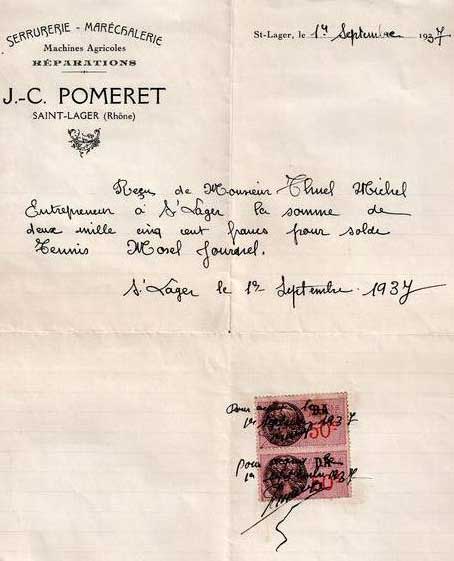 SERRURERIE - MARÉCHALERIE
Machines Agricoles
RÉPARATIONS
J.-C. POMERET
SAINT-LAGER (Rhône)
St-Lager, le 1er Septembre 1937
Reçu de Monsieur Michel
Entrepreneur à St Lager la somme de
deux mille cinq cent francs pour solde
Tennis Mosel
St Lager le 1er Septembre 1937
Pour
1er Septembre 1937
pour
1er Septembre 1937